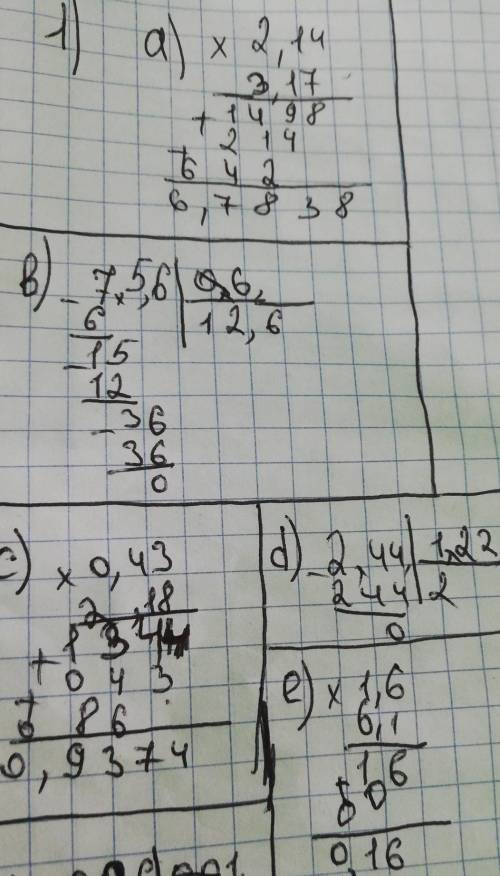 1) a) × 2,14
3,17
+ 1 4 9 8
2 1 4
+ 6 4 2
6,7 8 3 8
b) - 7,5,6 | 0,6,
6 | 12,6
- 15
12
- 36
36
0
c) × 0,43
2,18
+ 1 3 44
0 4 3
+ 0 8 6
0,9 3 7 4
d) - 2,44, | 1,22
2 44 | 2
0
e) × 1,6
6,1
1 6
+ 0 0
0,16